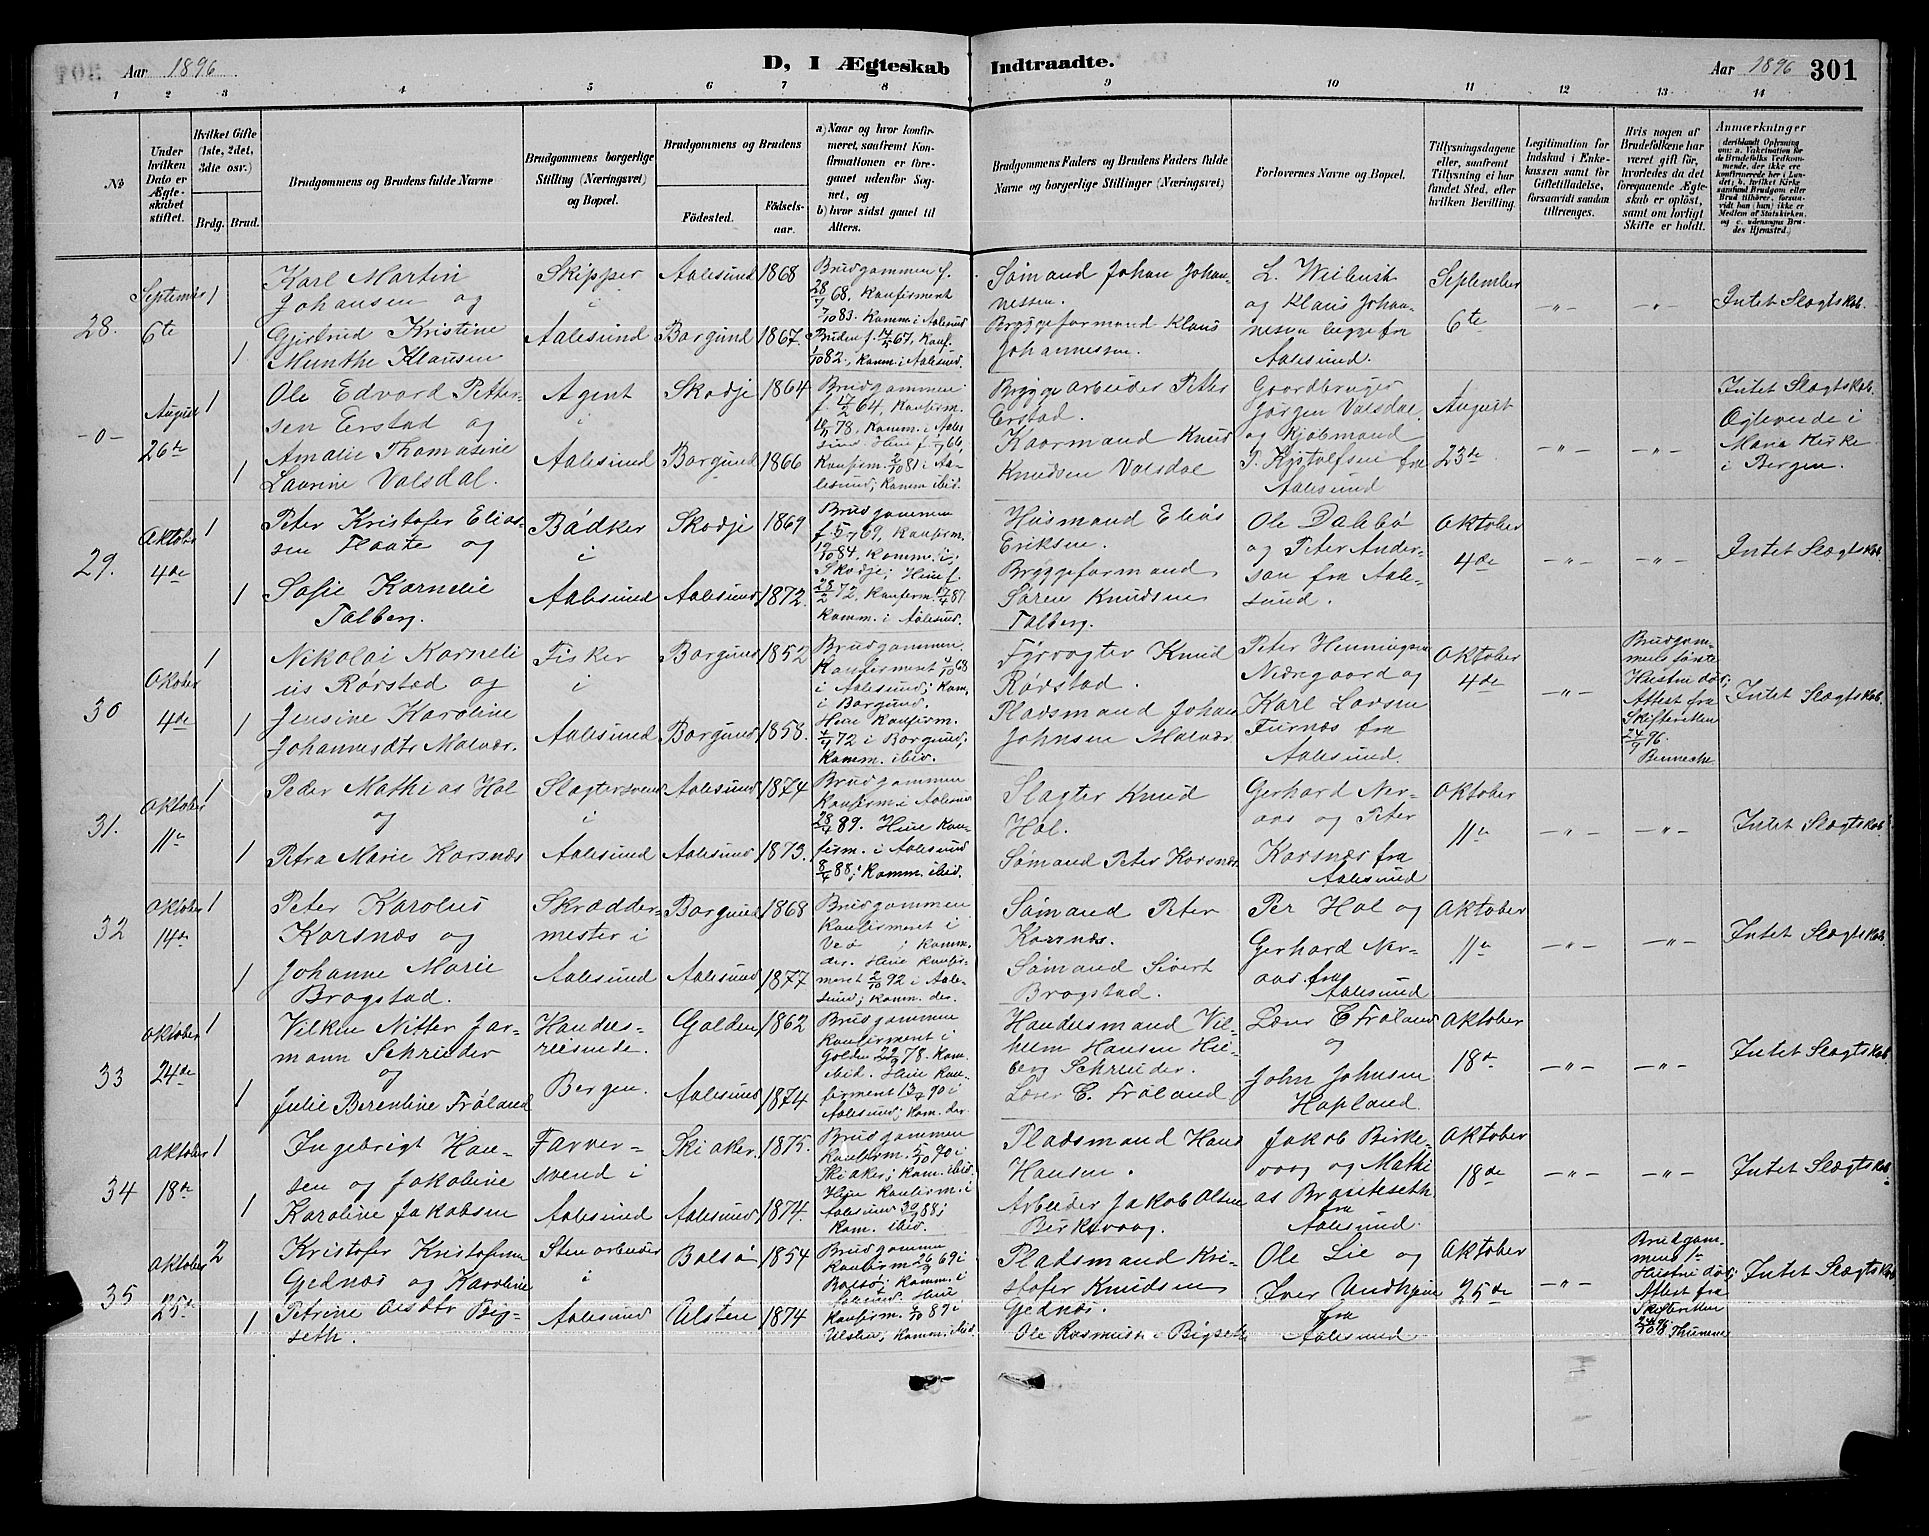 Aar 1896 D, I Ægteskab Indtraadte. Aar 1896 301
1 2 3 4 5 6 7 8 9 10 11 12 13 14
No
Under hvilken Dato er Ægteskabet stiftet.
Hvilket Gifte (1ste, 2det, 3die osv.)
Brdg. Brud.
Brudgommens og Brudens fulde Navne
Brudgommens borgerlige Stilling (Næringsvei) og Bopæl.
Brudgommens og Brudens
Fødested. Fødselsaar.
a) Naar og hvor konfirmeret, saafremt Konfirmationen er foregaaet udenfor Sognet, og
b) hvor sidst gaaet til Alters.
Brudgommens Faders og Brudens Faders fulde Navne og borgerlige Stillinger (Næringsvei)
Forlovernes Navne og Bopæl.
Tillysningsdagene eller, saafremt Tillysning ei har fundet Sted, efter hvilken Bevilling.
Legitimation for Indskud i Enkekassen samt for Giftetilladelse, forsaavidt saadan tiltrænges.
Hvis nogen af Brudefolkene har været gift før, hvorledes da det foregaaende Ægteskab er opløst, samt om lovligt Skifte er holdt.
Anmærkninger
28.
September 6te
1
1
Karl Martin
Johansen og
Gjertrud Kristine
Munthe Klausen
Skipper
i
Aalesund
Aalesund 1868
Borgund 1867.
Brudgommen f.
28/7 68, Konfirment
7/10 83. Komm. i Aalesund
Bruden f. 14/5 67, Konf.
1/10 82., Komm. i Aalesund.
Sømand Johan Johan-
nessen.
Bryggeformand Klaus
Johannessen.
L. Weibust
og Klaus Johan-
nesen begge fra
Aalesund.
September
6te
-"-
-"-
Intet Slægtskab.
-0-
August 26te
1
1
Ole Edvard Petter-
sen Erstad og
Amalie Thomasine
Laurine Valsdal.
Agent
i
Aalesund
Skodje 1864
Borgund 1866
Brudgommen
f. 17/2 64, Konfirm.
Konfirm. 2/10 81 i Aa-
lesund; Komm ibid.
Bryggearbeider Peter
Erstad.
Kaarmand Knud
Knudsen Valsdal
Gaardbruger
Jørgen Valsdal
og Kjøbmand
Aalesund
August
23de
-"-
-"-
Intet Slægtskab.
Ogleviede i
Maria Kirke
i Bergen.
29.
Oktober 4de
1
1
Peter Kristofer Elias-
sen Flaate og
Sofie Kornelie
Talberg.
Bødker
i
Aalesund
Skodje 1869
Aalesund 1872.
Brudgommen
f. 5/7 69, Konfirm.
19/10 84. Komm. i
Skodje; Hun f.
28/2 72. Konfirm. 17/4 87
Komm. i Aalesund.
Husmand Elias
Eriksen.
Bryggeformand
Søren Knudsen
Talberg.
Ole Dalebø
og Peter Ander-
sen fra Aale-
sund.
Oktober
4de
-"-
-"-
Intet Slægtskab
30
Oktober 4de
1
1
Nikolai Korneli
us Rørstad og
Jensine Karoline
Johannesdtr Molvær.
Fisker
i
Aalesund
Borgund 1852
Borgund 1858.
Brudgommen
Konfirmeret 4/10 68
i Aalesund; Kom.
i Borgund.
Hun Konfirm.
72 i Borgund;
Komm. ibid.
Fyrvogter Knud
Rørstad.
Pladsmand Johan
Johnsen Molvær
Peter Henningsen
Nedregaard og
Karl Larsen
Furnæs fra
Aalesund.
Oktober
4de
-"-
Brudgom-
mens første
Hustru død;
Attest fra
Skifteretten
24/9 96.
Intet Slægtskab.
31.
Oktober 11te
1
1
Peder Mathias Hol
og
Petra Marie Korsnæs
Slagtersvend
i
Aalesund
Aalesund 1874
Aalesund 1873.
Brudgommen
Konfirm. i Aalesund
28/4 89. Hun Kon-
firm. i Aalesund
8/4 88; Komm. ibid.
Slagter Knud
Hol.
Sømand Peter Korsnæs
Gerhard Ner-
aas og Peter
Korsnæs fra
Aalesund
Oktober
11te
-"-
-"-
Intet Slægtskab.
32
Oktober 14de
1
1
Peter Karolus
Korsnæs og
Johanne Marie
Brogstad.
Skrædder-
mester i
Aalesund
Borgund 1868
Aalesund 1877
Brudgommen
Konfirmeret i
Veø; Komm.
der. Hun Konfir-
meret 2/10 92 i Aale-
sund; Komm. der.
Sømand Peter
Korsnæs.
Sømand Sivert
Brogstad.
Per Hol og
Gerhard Ner-
aas fra
Aalesund
Oktober
11te
-"-
-"-
Intet Slægtskab.
33
Oktober 24de
1
1
Vilken Nitter Jar-
mann Schreuder
og
Julie Berentine Frøland
Handels-
reisende.
Bergen.
Golden 1862
Aalesund 1874
Brudgommen
Konfirment i
Golden 22/9 78. Kom.
ibid. Hun Kon-
firment 13/4 90 i
Aalesund; Kom. der
Handelsmand Vil-
helm Hansen Hei-
berg Schreuder.
Lærer C. Frøland
Lærer C Frøland
og
John Johnsen
Hopland.
Oktober
18de
-"-
-"-
Intet Slægtskab
34
Oktober 18de
1
1
Ingebrigt Han-
sen og Jakoline
Karoline Jakobsen
Farver-
svend i
Aalesund
Skiaker. 1875.
Aalesund 1874.
Brudgommen
Konfirm. 5/10 90 i
Skiaker; Kom. ibid.
Hun Konfirm. i
Aalesund 30/9 88;
Kom. ibid.
Pladsmand Hans
Hansen.
Arbeider Jakob Olsen
Birkevaag.
Jakob Birke-
vaag og Mathi
as Brauteseth
fra
Aalesund.
Oktober
18de
-"-
-"-
Intet Slægtskab.
35
Oktober 25de
2
1
Kristofer Kristofersen
Gjednæs og Karoline
Petrine Olsdtr Big-
seth.
Stenarbeider
i
Aalesund
Bolsø 1854
Ulsten 1874
Brudgommen
Konfirm 26/9 69 i
Bolsø; Komm. i
Aalesund. Hun
Konfirm. 6/10 89 i
Ulsten; Komm. ibid.
Pladsmand Kri-
stofer Knudsen
Gjednæs.
Ole Rasmussen Bigseth
Ole Lie og
Iver Undhjem
fra
Aalesund
Oktober
25de
-"-
Brudgom-
mens 1ste
Hustru død;
Attest fra
Skifteretten
24/10 96. Thumme
Intet Slægtskab